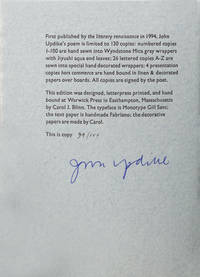 First published by the literary renaissance in 1994, John
Updike's poem is limited to 130 copies: numbered copies
1-100 are hand sewn into Wyndstone Mica gray wrappers
with Jiyushi aqua end leaves; 26 lettered copies A-Z are
sewn into special hand decorated wrappers; 4 presentation
copies hors commerce are hand bound in linen & decorated
papers over boards. All copies are signed by the poet.
This edition was designed, letterpress printed, and hand
bound at Warwick Press in Easthampton, Massachusetts
by Carol J. Blinn. The typeface is Monotype Gill Sans;
the text paper is handmade Fabriano; the decorative
papers are made by Carol.
This is copy
John Updike